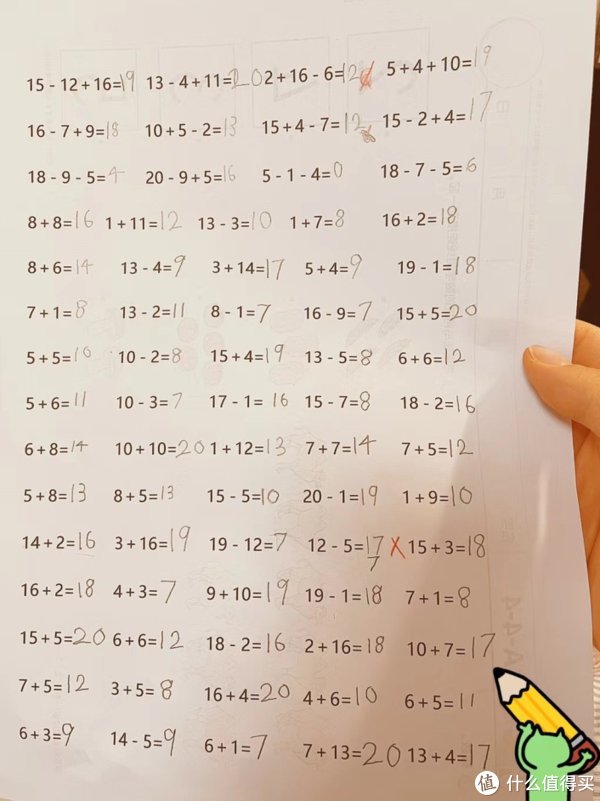 15 - 12 + 16=19 13 - 4 + 11=20 2 + 16 - 6=12 5 + 4 + 10=19
16 - 7 + 9=18 10 + 5 - 2=13 15 + 4 - 7=12 15 - 2 + 4=17
18 - 9 - 5=4 20 - 9 + 5=16 5 - 1 - 4=0 18 - 7 - 5=6
8 + 8=16 1 + 11=12 13 - 3=10 1 + 7=8 16 + 2=18
8 + 6=14 13 - 4=9 3 + 14=17 5 + 4=9 19 - 1=18
7 + 1=8 13 - 2=11 8 - 1=7 16 - 9=7 15 + 5=20
5 + 5=10 10 - 2=8 15 + 4=19 13 - 5=8 6 + 6=12
5 + 6=11 10 - 3=7 17 - 1=16 15 - 7=8 18 - 2=16
6 + 8=14 10 + 10=20 1 + 12=13 7 + 7=14 7 + 5=12
5 + 8=13 8 + 5=13 15 - 5=10 20 - 1=19 1 + 9=10
14 + 2=16 3 + 16=19 19 - 12=7 12 - 5=17 X 15 + 3=18
7
16 + 2=18 4 + 3=7 9 + 10=19 19 - 1=18 7 + 1=8
15 + 5=20 6 + 6=12 18 - 2=16 2 + 16=18 10 + 7=17
7 + 5=12 3 + 5=8 16 + 4=20 4 + 6=10 6 + 5=11
6 + 3=9 14 - 5=9 6 + 1=7 7 + 13=20 13 + 4=17
值 什么值得买